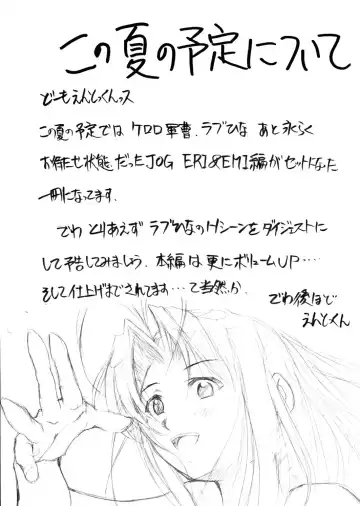 この夏の予定について
どーもえんとっくんっス
この夏の予定では ケロロ軍曹、ラブひな あと永らく
お待たせ状態だったJOG ERI&EMI編がセットになった
一冊になってます.
でわ とりあえず ラブひなのHシーンをダイジェストに
して予告してみましょう. 本編は更にボリュームUP・・・・
そして仕上げまでされてます・・・・て当然か.
でわ後ほど
えんとくん